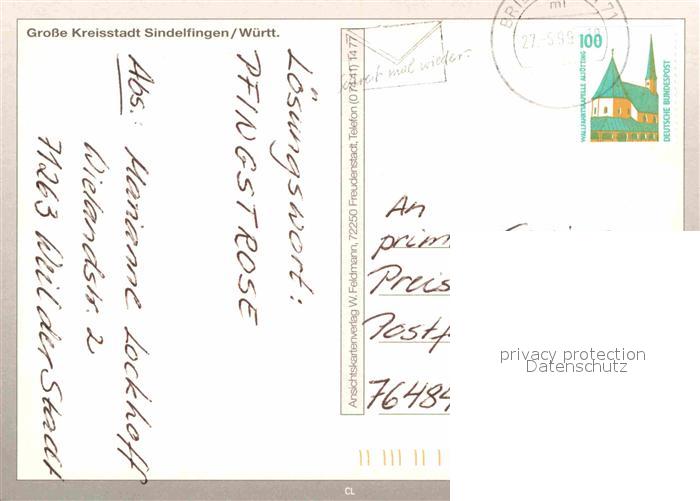 Große Kreisstadt Sindelfingen/Württ.
Lösungswort:
PFINGSTROSE
Abs.: Marianne Lockhoff
Wielandstr. 2
71263 Weil der Stadt
Ansichtskartenverlag W. Feldmann, 72250 Freudenstadt, Telefon (0 74 41) 14 77
Schreib mal wieder.
71
27.-5.99
100
WALLFAHRTSKAPELLE ALTÖTTING
DEUTSCHE BUNDESPOST
An
Preis
Postf
76484
privacy protection
Datenschutz
CL